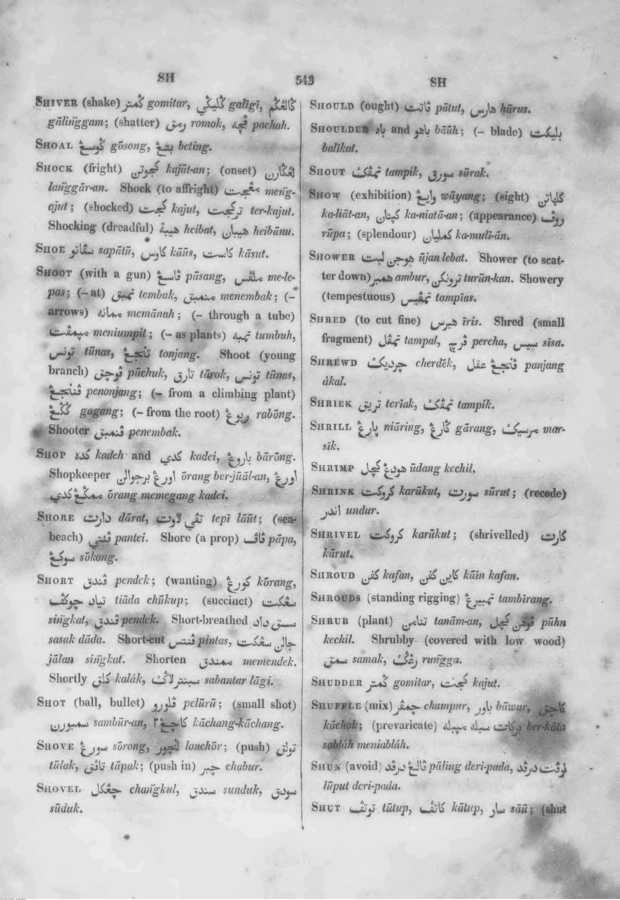 SH
543
SH
SHIVER (shake) گمتر gomitar, گليگي galigi, گالڠگم
gālinggam; (shatter) رمق romok, pachah.
SHOAL گوسڠ gōsong, beting.
SHOCK (fright) kajūt-an; (onset) لڠگارن
langgār-an. Shock (to affright) مڠجت meng-
ajut; (shocked) كجت kajut, تركجت ter-kajut.
Shocking (dreadful) هيبة heibat, هيبان heibānu.
SHOE سڤاتو sapātū, كاوس kāūs, كاست kāsut.
SHOOT (with a gun) ڤاسڠ pāsang, ملڤس me-le-
pas; (– at) تمبق tembak, منمبق menembak; (–
arrows) ممانه memānah; (– through a tube)
meniumpit; (– as plants) تمبه tumbuh,
تونس tūnas, tonjang. Shoot (young
branch) ڤوچق pūchuk, تارق tārok, تونس tūnas,
penonjang; (– from a climbing plant)
gagang; (– from the root) ربوڠ rabōng.
Shooter ڤنمبق penembak.
SHOP كده kadeh and كدي kadei, باروڠ bārōng.
Shopkeeper اورڠ برجوالن ōrang ber-jūāl-an, اورڠ
ممگڠ كدي ōrang memegang kadei.
SHORE دارت dārat, تڤي لاوت tepī lāūt; (sea-
beach) ڤنتي pantei. Shore (a prop) ڤاڤ pāpa,
سوكڠ sōkong.
SHORT ڤندق pendek; (wanting) كورڠ kōrang,
تياد چوكڤ tiāda chūkup; (succinct) سڠكت
singkat, ڤندق pendek. Short-breathed سسق داد
sasak dāda. Short-cut ڤنتس pintas, جالن سڠكت
jālan singkat. Shorten ممندق memendek.
Shortly كالق kalāk, سبنتر لاگ sabantar lāgi.
SHOT (ball, bullet) ڤلورو pelūrū; (small shot)
سمبورن sambūr-an, كاچڠ٢ kāchang-kāchang.
SHOVE سورڠ sōrong, لنچور lanchōr; (push) تولق
tūlak, تاڤق tāpak; (push in) چبر chabur.
SHOVEL چڠكل changkul, سندق sunduk, سودق
sūduk.
SHOULD (ought) ڤاتت pātut, هارس hārus.
SHOULDER باه and باهو bāūh; (– blade) بليكت
balikat.
SHOUT تمڤك tampik, سورق sūrak.
SHOW (exhibition) وايڠ wāyang; (sight) كلياتن
ka-liāt-an, كنياتان ka-niatā-an; (appearance) روڤ
rūpa; (splendour) كمليان ka-mulī-ān.
SHOWER هوجن لبت ūjan lebat. Shower (to scat-
ter down) همبر ambur, تورونكن turūn-kan. Showery
(tempestuous) تمڤيس tampias.
SHRED (to cut fine) هيرس īris. Shred (small
fragment) تمڤل tampal, ڤرچ percha, سيس sisa.
SHREWD چرديك cherdēk, ڤنجڠ عقل panjang
ākal.
SHRIEK تريق terīak, تمڤك tampik.
SHRILL نيارڠ niāring, گارڠ gārang, مرسيك mar-
sīk.
SHRIMP هودڠ كچل ūdang kechil.
SHRINK كروكت karūkut, سورت sūrut; (recede)
اندر undur.
SHRIVEL كروكت karūkut; (shrivelled) كارت
kārut.
SHROUD كفن kafan, كاين كفن kāin kafan.
SHROUDS (standing rigging) تمبيرڠ tambīrang.
SHRUB (plant) تنامن tanām-an, ڤوهن كچل pūhn
kechil. Shrubby (covered with low wood)
سمق samak, رڠگ rungga.
SHUDDER گمتر gomitar, كجت kajut.
SHUFFLE (mix) چمڤر champur, باور bāwar, كاچق
kāchok; (prevaricate) ber-kāta
sablāh meniablāh.
SHUN (avoid) ڤالڠ درڤد pāling deri-pada, لوڤت درڤد
lūput deri-pada.
SHUT توتڤ tūtup, كاتڤ kātup, سار sāū; (shut